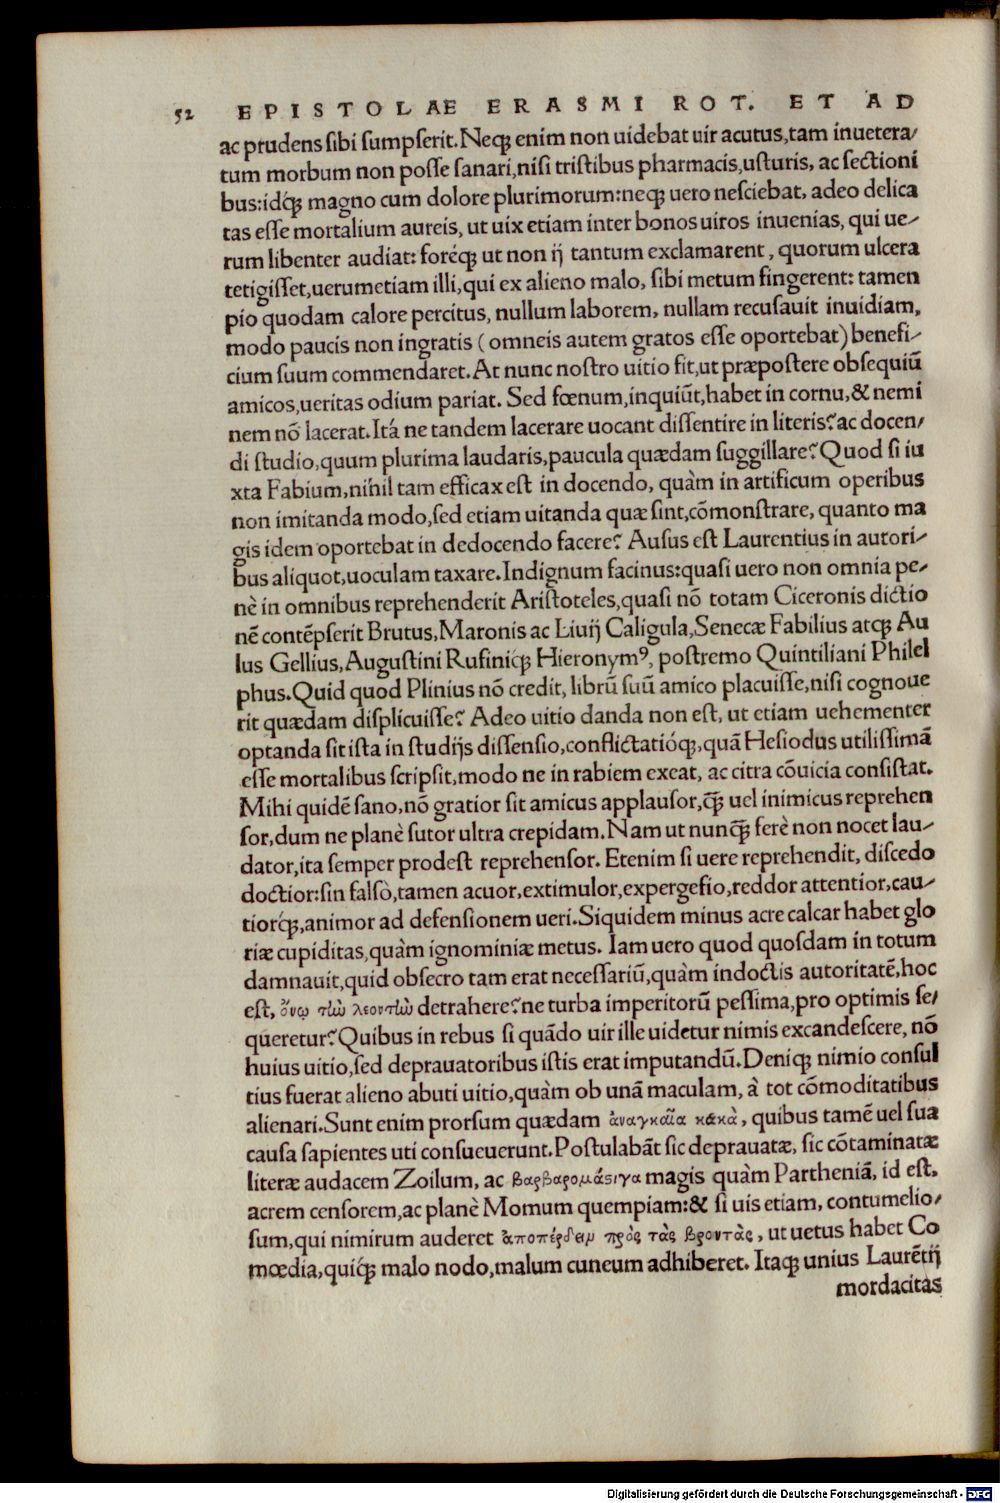 52 EPISTOLAE ERASMI ROT. ET AD
ac prudens sibi sumpserit. Neqꝫ enim non uidebat uir acutus, tam inuetera/
tum morbum non posse sanari, nisi tristibus pharmacis, usturis, ac sectioni
bus: idq́ꝫ magno cum dolore plurimorum: neqꝫ uero nesciebat, adeo delica
tas esse mortalium aureis, ut uix etiam inter bonos uiros inuenias, qui ue/
rum libenter audiat: foréqꝫ ut non ij tantum exclamarent, quorum ulcera
tetigisset, uerumetiam illi, qui ex alieno malo, sibi metum fingerent: tamen
pio quodam calore percitus, nullum laborem, nullam recusauit inuidiam,
modo paucis non ingratis (omneis autem gratos esse oportebat) benefi/
cium suum commendaret. At nunc nostro uitio fit, ut præpostere obsequiũ
amicos, ueritas odium pariat. Sed fœnum, inquiũt, habet in cornu, & nemi
nem nõ lacerat. Itá ne tandem lacerare uocant dissentire in literis? ac docen/
di studio, quum plurima laudaris, paucula quædam suggillare? Quod si iu
xta Fabium, nihil tam efficax est in docendo, quàm in artificum operibus
non imitanda modo, sed etiam uitanda quæ sint, cõmonstrare, quanto ma
gis idem oportebat in dedocendo facere? Ausus est Laurentius in autori/
bus aliquot, uoculam taxare. Indignum facinus: quasi uero non omnia pe/
nè in omnibus reprehenderit Aristoteles, quasi nõ totam Ciceronis dictio
nẽ contẽpserit Brutus, Maronis ac Liuij Caligula, Senecæ Fabilius atqꝫ Au
lus Gellius, Augustini Rufiniq́ꝫ Hieronymꝰ, postremo Quintiliani Philel
phus. Quid quod Plinius nõ credit, librũ suũ amico placuisse, nisi cognoue
rit quædam displicuisse? Adeo uitio danda non est, ut etiam uehementer
optanda sit ista in studijs dissensio, conflictatióqꝫ, quã Hesiodus utilissimã
esse mortalibus scripsit, modo ne in rabiem exeat, ac citra cõuicia consistat.
Mihi quidẽ sano, nõ gratior sit amicus applausor, q̃ꝫ uel inimicus reprehen
sor, dum ne planè sutor ultra crepidam. Nam ut nunq̃ꝫ ferè non nocet lau/
dator, ita semper prodest reprehensor. Etenim si uere reprehendit, discedo
doctior: sin falsò, tamen acuor, extimulor, expergefio, reddor attentior, cau/
tiorq́ꝫ, animor ad defensionem ueri. Siquidem minus acre calcar habet glo
riæ cupiditas, quàm ignominiæ metus. Iam uero quod quosdam in totum
damnauit, quid obsecro tam erat necessariũ, quàm indoctis autoritatẽ, hoc
est, ὄνῳ τὴν λεοντὴν detrahere? ne turba imperitorũ pessima, pro optimis se/
queretur? Quibus in rebus si quãdo uir ille uidetur nimis excandescere, nõ
huius uitio, sed deprauatoribus istis erat imputandũ. Deniqꝫ nimio consul
tius fuerat alieno abuti uitio, quàm ob unã maculam, à tot cõmoditatibus
alienari. Sunt enim prorsum quædam ἀναγκαῖα κακὰ, quibus tamẽ uel sua
causa sapientes uti consueuerunt. Postulabãt sic deprauatæ, sic cõtaminatæ
literæ audacem Zoilum, ac βαρβαρομάϛιγα magis quàm Partheniã, id est,
acrem censorem, ac planè Momum quempiam: & si uis etiam, contumelio/
sum, qui nimirum auderet ἀποπέρδειν πρὸς τὰς βροντὰς, ut uetus habet Co
mœdia, quiq́ꝫ malo nodo, malum cuneum adhiberet. Itaqꝫ unius Laurẽtij
mordacitas
Digitalisierung gefördert durch die Deutsche Forschungsgemeinschaft - DFG